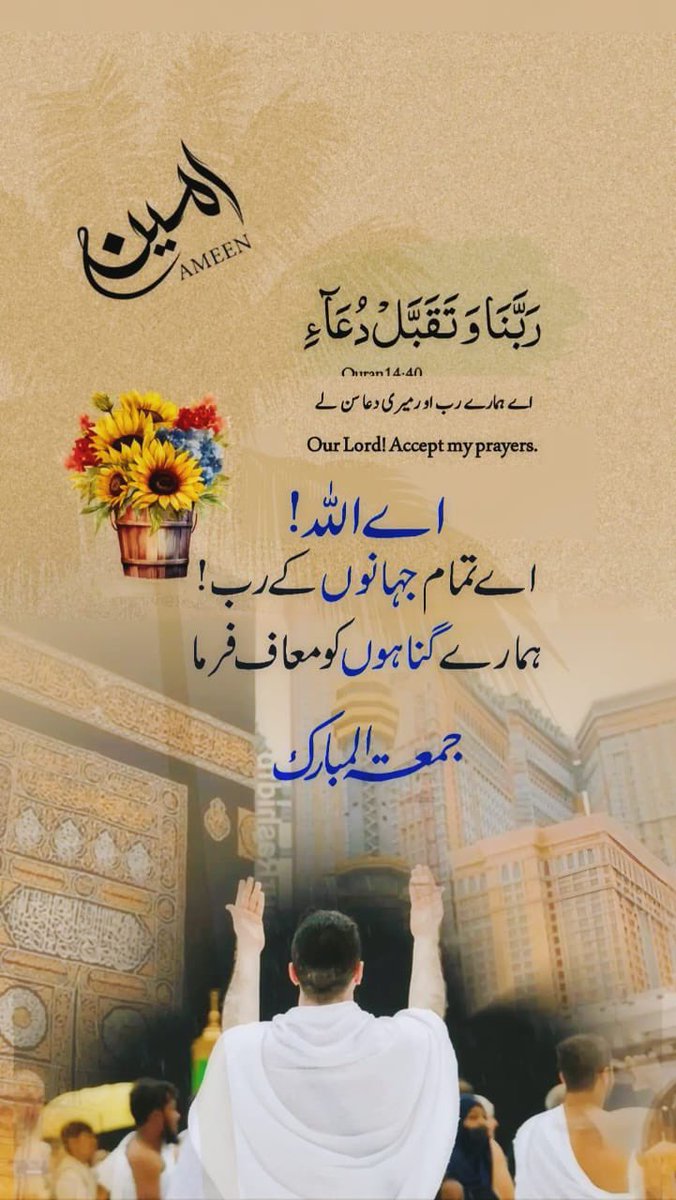 امین
AMEEN
رَبَّنَا وَ تَقَبَّلْ دُعَآءِ
Quran 14:40
اے ہمارے رب اور میری دعا سن لے
Our Lord! Accept my prayers.
اے اللہ !
اے تمام جہانوں کے رب !
ہمارے گناہوں کو معاف فرما
جمعتہ المبارک